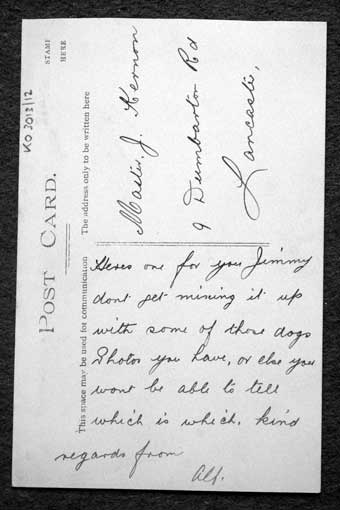 POST CARD.
STAMP
HERE
KO 2013/12
This space may be used for communication
The address only to be written here
Heres one for you Jimmy
dont get mixing it up
with some of those dogs
Photos you have, or else you
wont be able to tell
which is which. kind
regards from
Alf.
Master. J. Kernon
9 Dumbarton Rd
Lancaster,